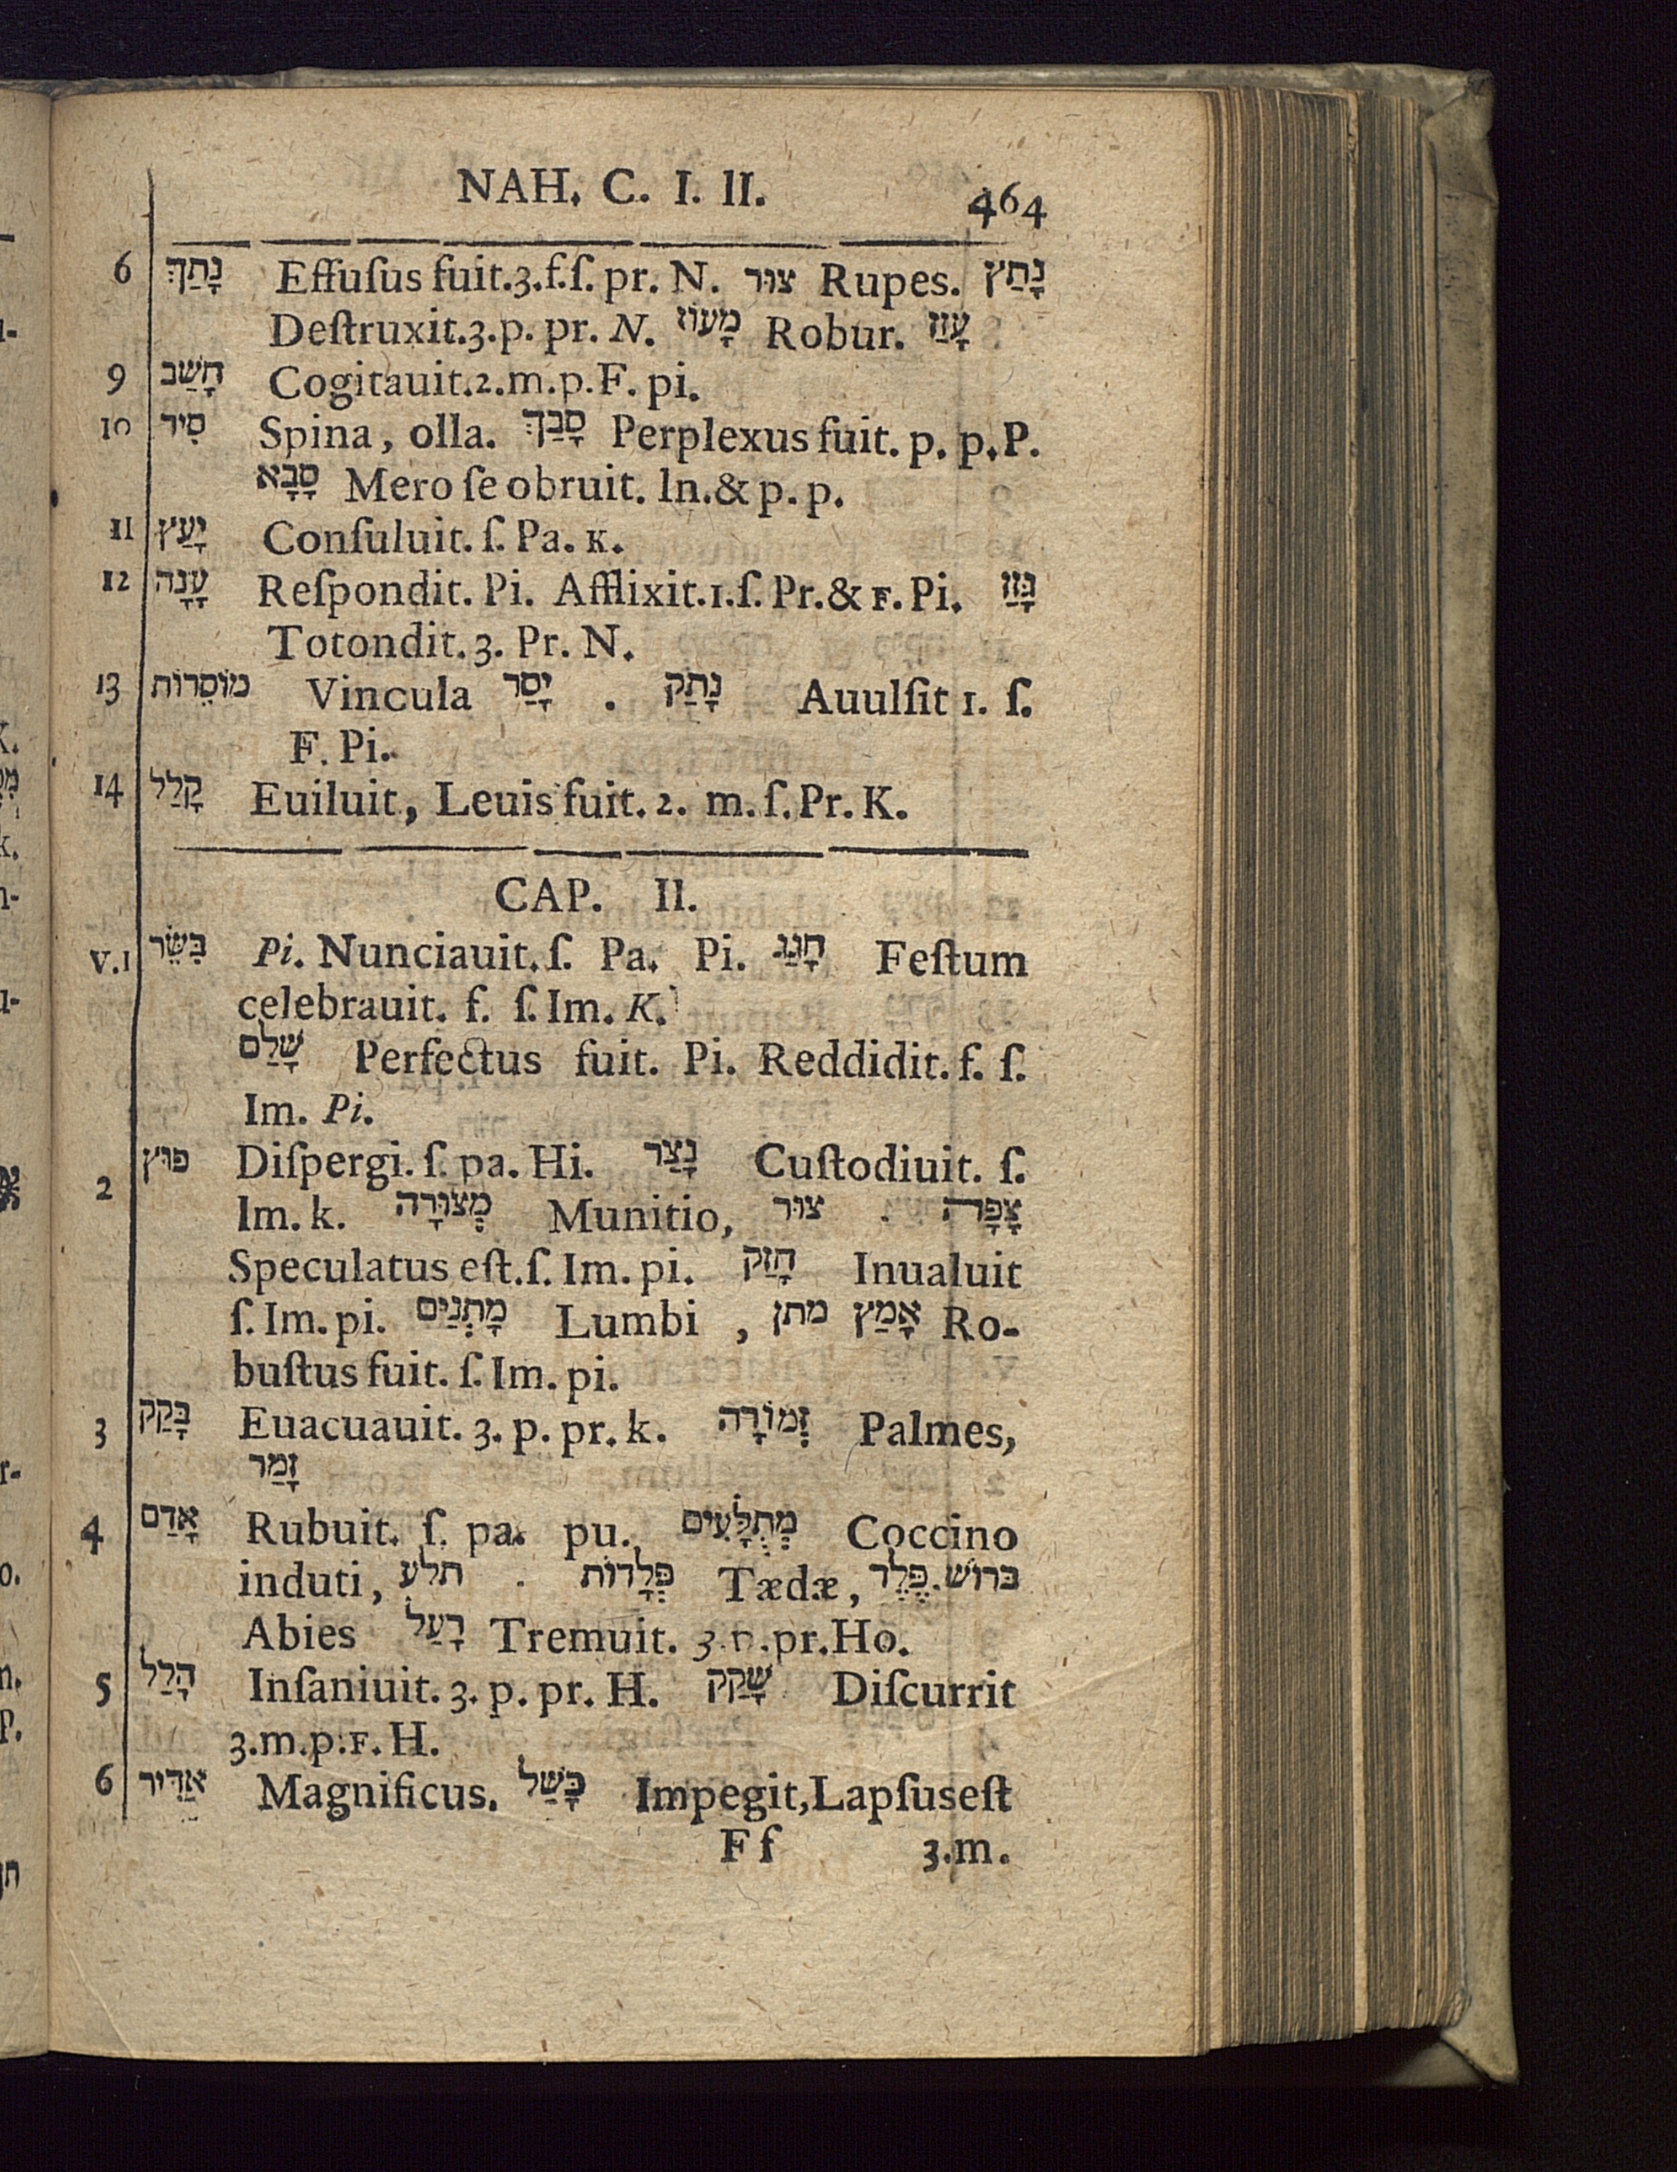 NAH. C. I. II. 464
6 נָתַךְ Effuſus fuit.3.f.ſ. pr. N. צוּר Rupes. נָתַץ
Deſtruxit.3.p. pr. N. מָעוֹז Robur. עָזַז
9 חָשַׁב Cogitauit.2.m.p.F. pi.
10 סִיר Spina, olla. סָבַךְ Perplexus fuit. p. p.P.
סָבָא Mero ſe obruit. In.& p. p.
11 יָעַץ Conſuluit. ſ. Pa. K.
12 עָנָה Reſpondit. Pi. Afflixit.1.ſ. Pr.& F. Pi. גָּזַז
Totondit. 3. Pr. N.
13 מוֹסֵרוֹת Vincula יָסַר . נָתַק Auulſit 1. ſ.
F. Pi.
14 קָלַל Euiluit, Leuis fuit. 2. m. ſ. Pr. K.
CAP. II.
V.1 בִּשֵּׂר Pi. Nunciauit. ſ. Pa. Pi. חָגַג Feſtum
celebrauit. f. ſ. Im. K.
שָׁלַם Perfectus fuit. Pi. Reddidit. f. ſ.
Im. Pi.
2 פּוּץ Diſpergi. ſ. pa. Hi. נָצַר Cuſtodiuit. ſ.
Im. k. מְצוּרָה Munitio, צוּר . צָפָה
Speculatus eſt. ſ. Im. pi. חָזַק Inualuit
ſ. Im. pi. מָתְנַיִם Lumbi , מתן אָמַץ Ro-
buſtus fuit. ſ. Im. pi.
3 בָּקַק Euacuauit. 3. p. pr. k. זְמוֹרָה Palmes,
זָמַר
4 אָדַם Rubuit. ſ. pa. pu. מְתֻלָּעִים Coccino
induti, תלע . פְּלָדוֹת Tædæ, פֶּלֶד. בּרוֹשׁ
Abies רָעַל Tremuit. 3. .pr.Ho.
5 הָלַל Inſaniuit. 3. p. pr. H. שָׁקַק Diſcurrit
3.m.p.F. H.
6 אַדִּיר Magnificus. כָּשַׁל Impegit,Lapſus eſt
F f 3.m.